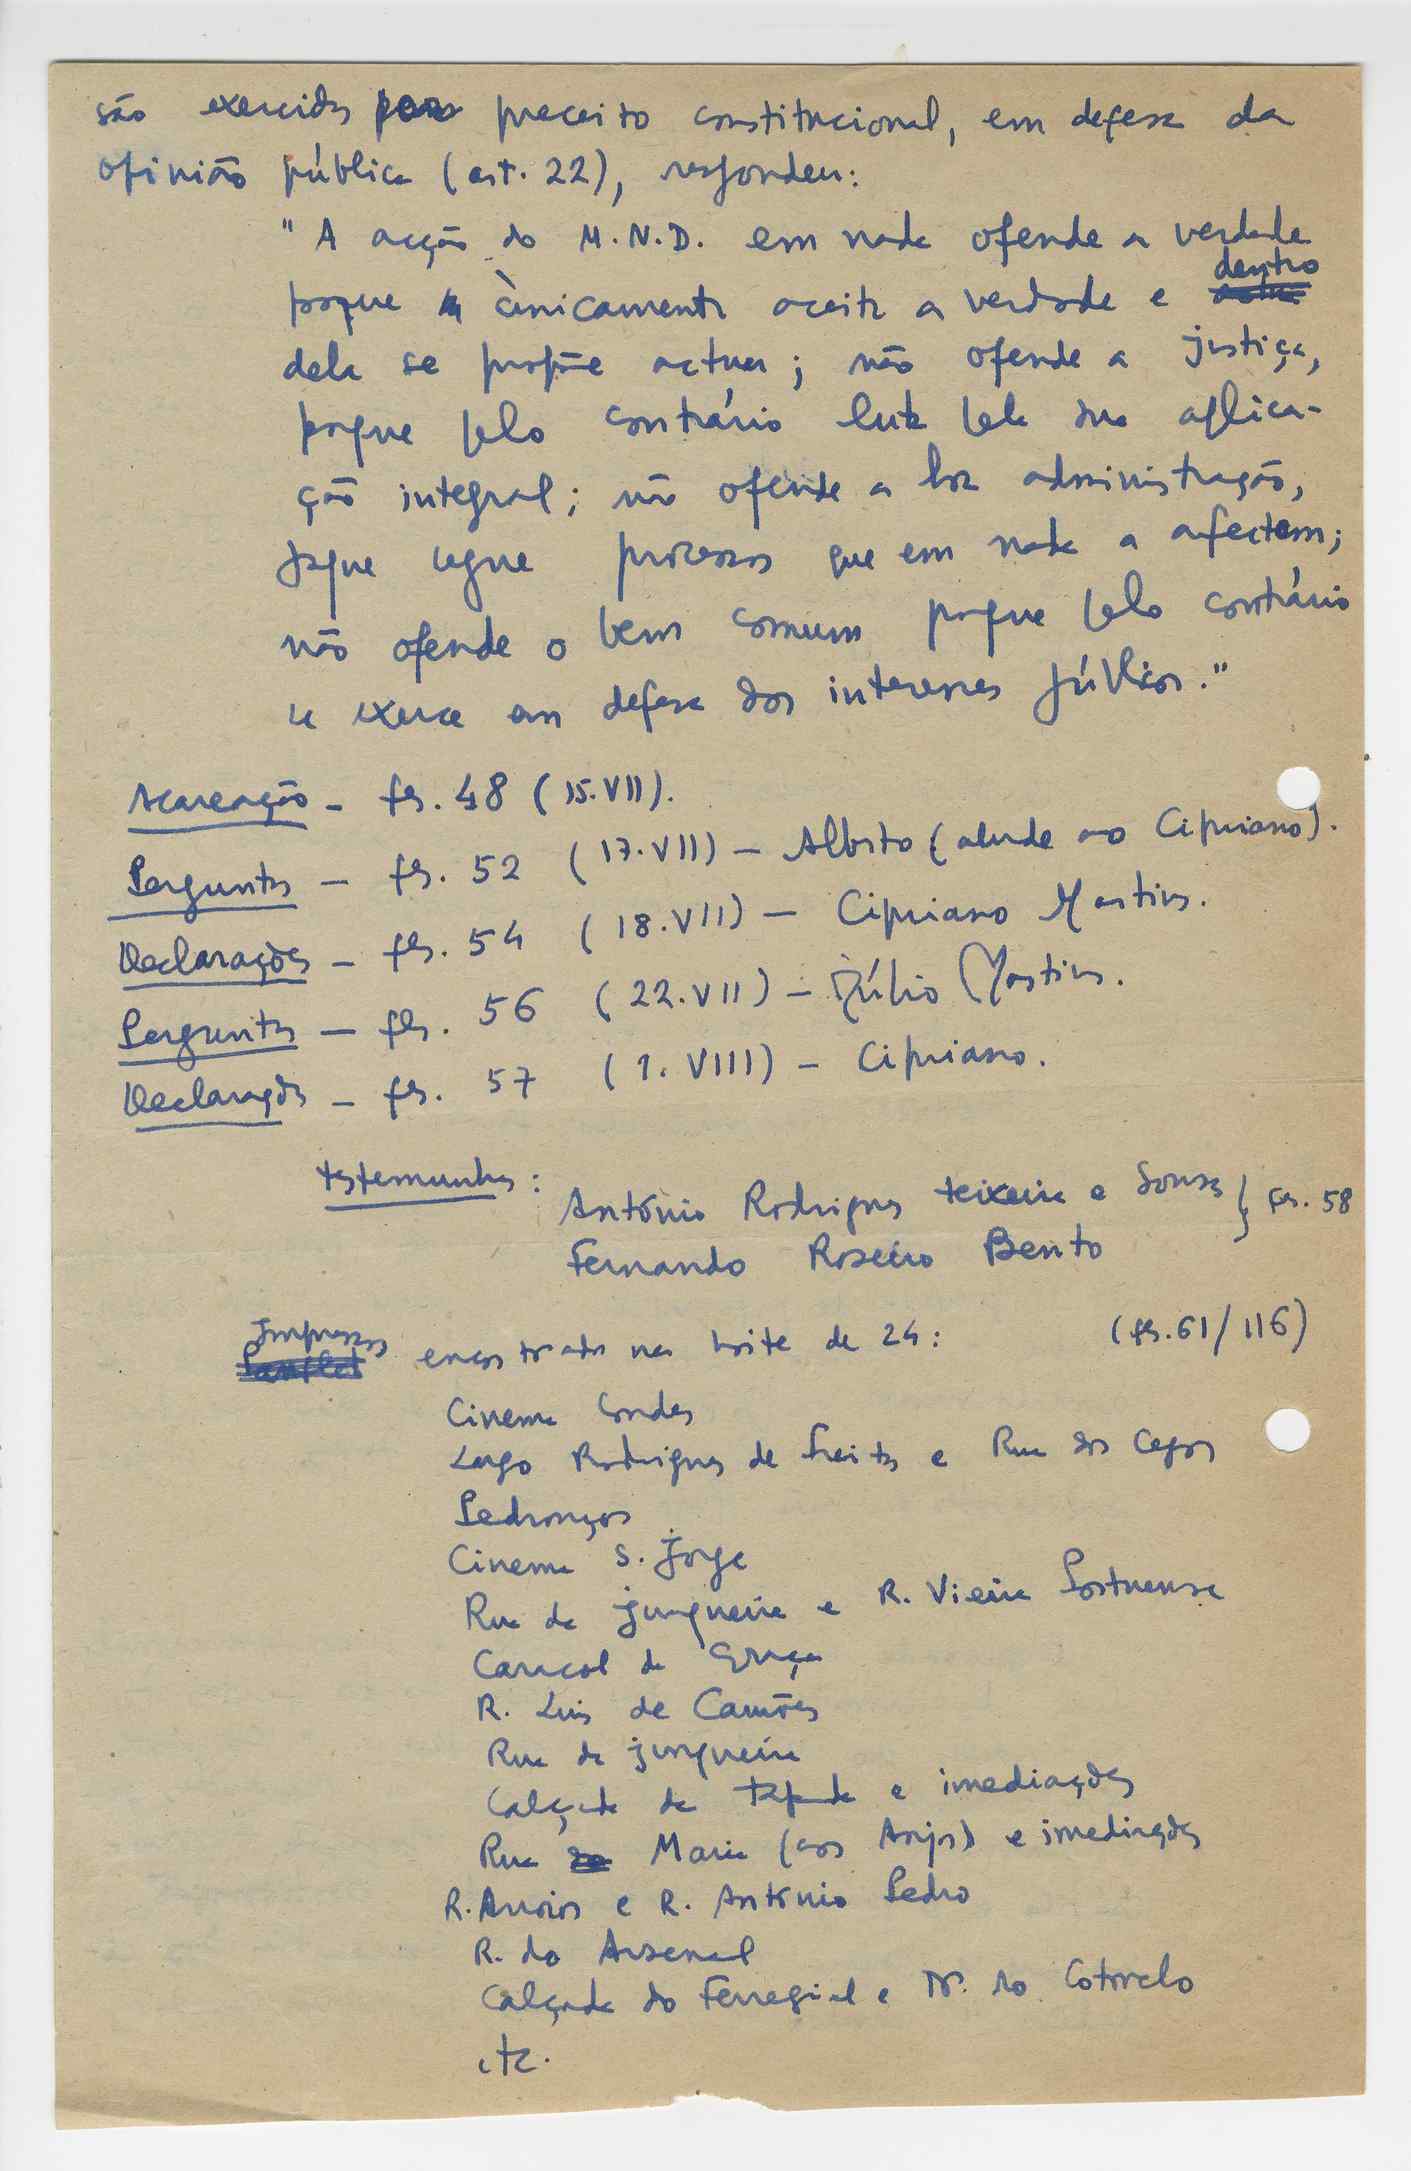 são exercidos por preceito constitucional, em defesa da
opinião pública (art. 22), respondeu:
"A acção do M.N.D. em nada ofende a verdade
porque ùnicamente aceita a verdade e dentro
dela se propõe actuar; não ofende a justiça,
porque pelo contrário luta pela sua aplica-
ção integral; não ofende a boa administração,
porque segue processos que em nada a afectem;
não ofende o bem comum porque pelo contrário
se exerce em defesa dos interesses públicos."
Acareação - fls. 48 (15.VII).
Perguntas - fls. 52 (17.VII) - Alberto (alude ao Cipriano).
Declarações - fls. 54 (18.VII) - Cipriano Martins.
Perguntas - fls. 56 (22.VII) - Júlio Martins.
Declarações - fls. 57 (1.VIII) - Cipriano.
testemunhas:
António Rodrigues Teixeira e Sousa } fls. 58
Fernando Roseiro Bento
Impressos encontrados na noite de 24: (fls. 61/116)
Cinema Condes
Largo Rodrigues de Freitas e Rua dos Cegos
Pedrouços
Cinema S. Jorge
Rua da Junqueira e R. Vieira Portuense
Caracol da Graça
R. Luís de Camões
Rua da Junqueira
Calçada da Tapada e imediações
Rua Maria (aos Anjos) e imediações
R. Arroios e R. António Pedro
R. do Arsenal
Calçada do Ferregial e do Cotovelo
etc.